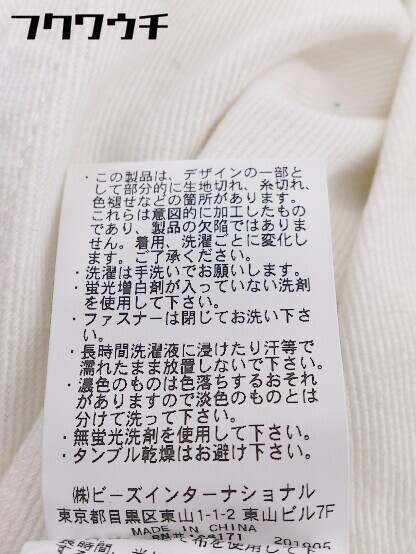 フクワウチ
・この製品は、デザインの一部と
して部分的に生地切れ、糸切れ、
色褪せなどの箇所があります。
これらは意図的に加工したもの
であり、製品の欠陥ではありま
せん。着用、洗濯ごとに変化し
ます。ご了承ください。
・洗濯は手洗いでお願いします。
・蛍光増白剤が入っていない洗剤
を使用して下さい。
・ファスナーは閉じてお洗い下さ
い。
・長時間洗濯液に浸けたり汗等で
濡れたまま放置しないで下さい。
・濃色のものは色落ちするおそれ
がありますので淡色のものとは
分けて洗って下さい。
・無蛍光洗剤を使用して下さい。
・タンブル乾燥はお避け下さい。
㈱ビーズインターナショナル
東京都目黒区東山1-1-2 東山ビル7F
MADE IN CHINA
201905